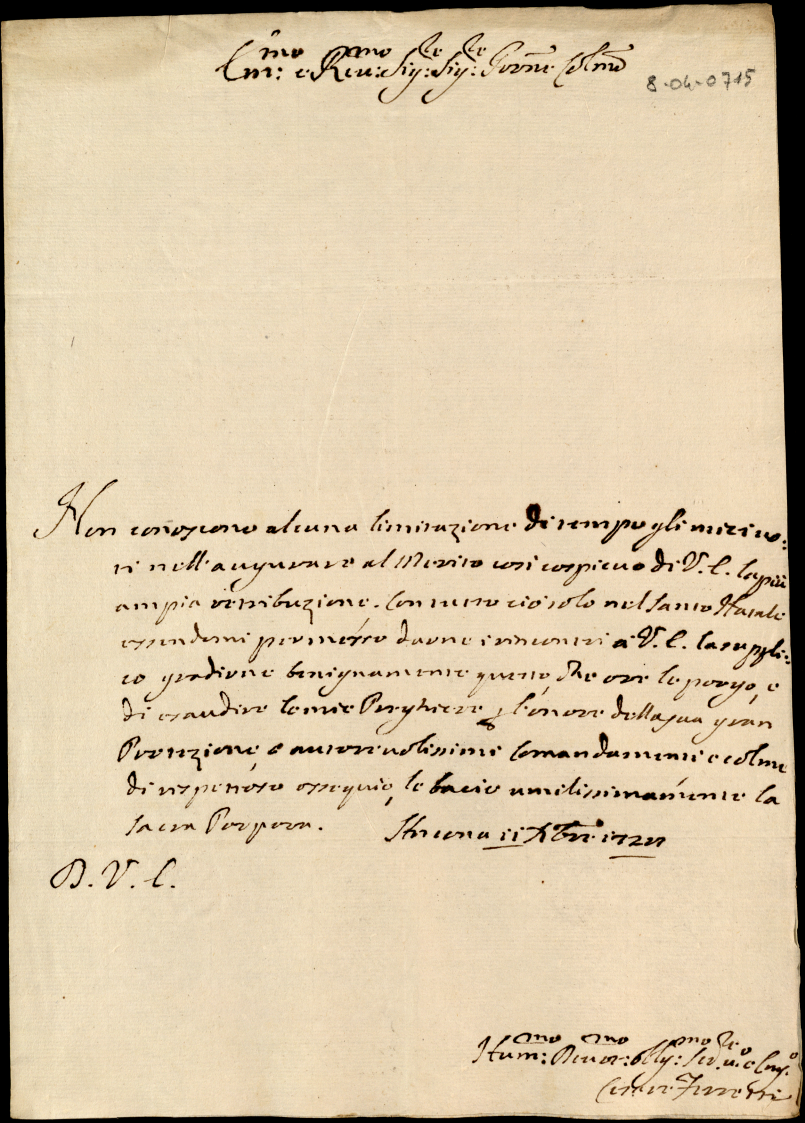 Em:mo e Reu:mo Sig:re Sig:re Pròne Colmo
8-04-0715
Non conoscono alcuna limitazione di tempo gli miei uo:
ti nell'augurare al Merito così cospicuo di V. E. la più
ampia retribuzione. Con tutto ciò solo nel Santo Natale
essendomi permesso darne i rincontri à V. E. la suppli:
co gradirne benignamente questo, che ora le porgo, e
di esaudire le mie Preghiere p l'onore della sua gran
Protezione, e autoreuolissimi Comandamenti e colmo
di rispettoso ossequio, le bacio umilissimamente la
Sacra Porpora. Ancona 11 Xbre
D. V. E.
Hum:mo Deuot:mo Obllig:mo Ser.re u.o e Cog.o
Cesare Ferretti